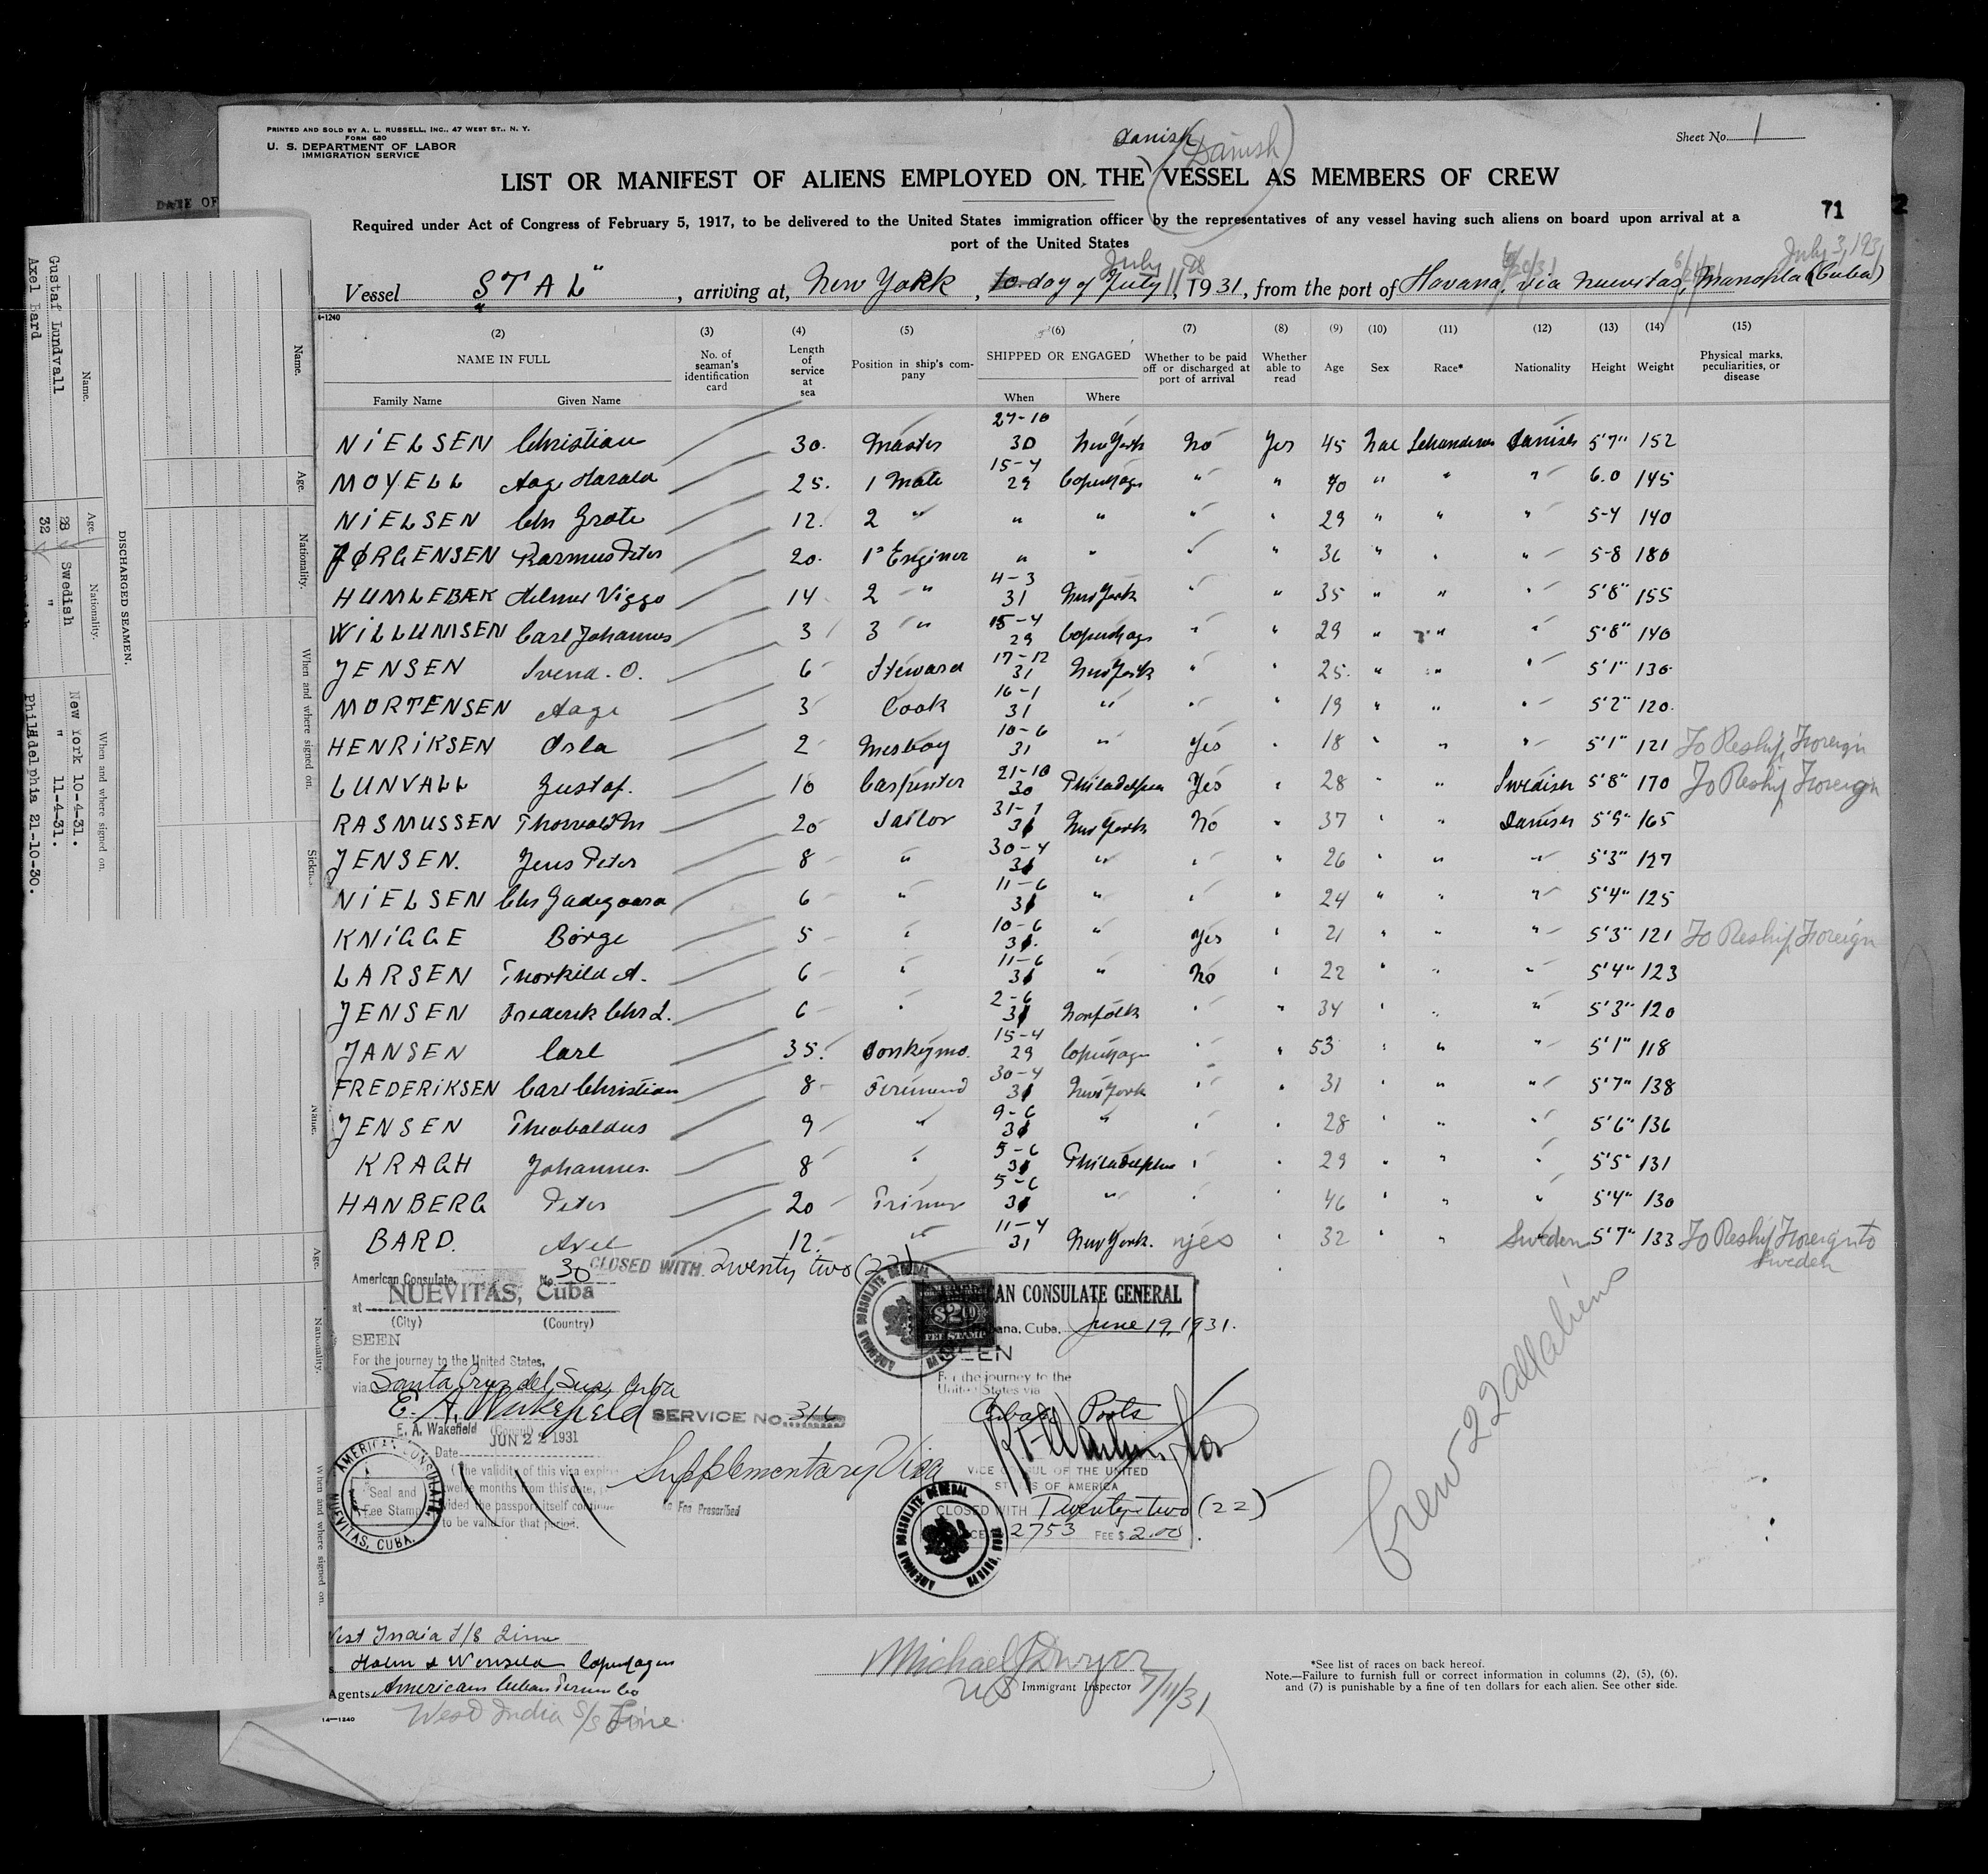 PRINTED AND SOLD BY A. L. RUSSELL, INC., 47 WEST ST., N. Y.
FORM 680
U. S. DEPARTMENT OF LABOR
IMMIGRATION SERVICE
Danish
(Danish)
Sheet No. 1
LIST OR MANIFEST OF ALIENS EMPLOYED ON THE VESSEL AS MEMBERS OF CREW
Required under Act of Congress of February 5, 1917, to be delivered to the United States immigration officer by the representatives of any vessel having such aliens on board upon arrival at a
port of the United States
71
DATE OF
July 3, 1931
Vessel "STAL", arriving at, New York, 10 day of July 11, 1931, from the port of Havana, via Nuevitas, Manopla (Cuba)
4-1240
(2) (3) (4) (5) (6) (7) (8) (9) (10) (11) (12) (13) (14) (15)
NAME IN FULL
Family Name Given Name
No. of seaman's identification card
Length of service at sea
Position in ship's company
SHIPPED OR ENGAGED
When Where
Whether to be paid off or discharged at port of arrival
Whether able to read
Age Sex Race* Nationality Height Weight
Physical marks, peculiarities, or disease
NIELSEN Christian 30. Master 27-10 30 New York No Yes 45 Danish 5'7" 152
MOYELL Aage Harald 25. 1 Mate 15-4 29 Copenhagn " " 40 " " " 6.0 145
NIELSEN Chr Grote 12. 2 " " " " " 29 " " " 5-4 140
JØRGENSEN Rasmus Peter 20. 1 Enginer " " " " 36 " " " 5-8 180
HUMLEBÆK Helmer Viggo 14 2 " 4-3 31 New York " " 35 " " " 5'8" 155
WILLUMSEN Carl Johannes 3 3 " 15-4 29 Copenhagn " " 29 " " " 5'8" 140
JENSEN Svend. O. 6 Steward 17-12 31 New York " " 25. " " " 5'1" 130
MORTENSEN Aage 3 Cook 16-1 31 " " " 19 " " " 5'2" 120.
HENRIKSEN Orla 2 Mesboy 10-6 31 " Yes " 18 " " " 5'1" 121 To Reship Foreign
LUNVALL Gustaf. 10 Carpenter 21-10 30 Philadelphia Yes " 28 " " Swedish 5'8" 170 To Reship Foreign
RASMUSSEN Thorvald M 20 Sailor 31-1 31 New York No " 37 " " Danish 5'9" 165
JENSEN. Jens Peter 8 " 30-4 31 " " " 26 " " " 5'3" 127
NIELSEN Chr Gadegaard 6 " 11-6 31 " " " 24 " " " 5'4" 125
KNIGGE Börge 5 " 10-6 31. " Yes " 21 " " " 5'3" 121 To Reship Foreign
LARSEN Thorkild A. 6 " 11-6 31 " No " 22 " " " 5'4" 123
JENSEN Frederik Chr L. 6 " 2-6 31 Norfolk " " 34 " " " 5'3" 120
JANSEN Carl 35. Donkeymd. 15-4 29 Copenhagn " " 53 " " " 5'1" 118
FREDERIKSEN Carl Christian 8 30-4 31 New York " " 31 " " " 5'7" 138
JENSEN Theobaldus 9 " 9-6 31 " " " 28 " " " 5'6" 136
KRAGH Johannes. 8 " 5-6 31 Philadelphia " " 29 " " " 5'5" 131
HANBERG Peter 20 Trimer 5-6 31 " " " 46 " " " 5'4" 130
BARD. Axel 12. " 11-4 31 New York. yes " 32 " " Sweden 5'7" 133 To Reship Foreign to Sweden
CLOSED WITH Twenty two (22)
American Consulate, No. 30
at NUEVITAS, Cuba
(City) (Country)
SEEN
For the journey to the United States,
via Santa Cruz del Sur, Cuba
E. A. Wakefield
E. A. Wakefield (Consul)
SERVICE NO. 316
Date JUN 22 1931
(The validity of this visa expires
twelve months from this date, pro-
vided the passport itself continues
to be valid for that period.
Supplementary Visa
No Fee Prescribed
AMERICAN CONSULATE, NUEVITAS, CUBA.
Seal and Fee Stamp
AMERICAN CONSULATE GENERAL
$2.00
FEE STAMP
Habana, Cuba, June 19, 1931.
SEEN
For the journey to the
United States via
Cuban Ports
VICE CONSUL OF THE UNITED
STATES OF AMERICA
CLOSED WITH Twenty-two (22)
2753 FEE $ 2.00
AMERICAN CONSULATE GENERAL
Crew 22 all aliens
West India S/S Line
Holm & Wonsild Copenhagen
Agents, American Cuban
West India S/S Line
14-1240
Michael J Dwyer
US Immigrant Inspector 7/11/31
*See list of races on back hereof.
Note.—Failure to furnish full or correct information in columns (2), (5), (6),
and (7) is punishable by a fine of ten dollars for each alien. See other side.
DISCHARGED SEAMEN.
Name. Age. Nationality. When and where signed on.
Gustaf Lundvall 28 Swedish
Axel Bard 32 "
New York 10-4-31.
" 11-4-31.
Philadelphia 21-10-30.
Name. Age. Nationality. When and where signed on.
Name. Age. Nationality. When and where signed on.